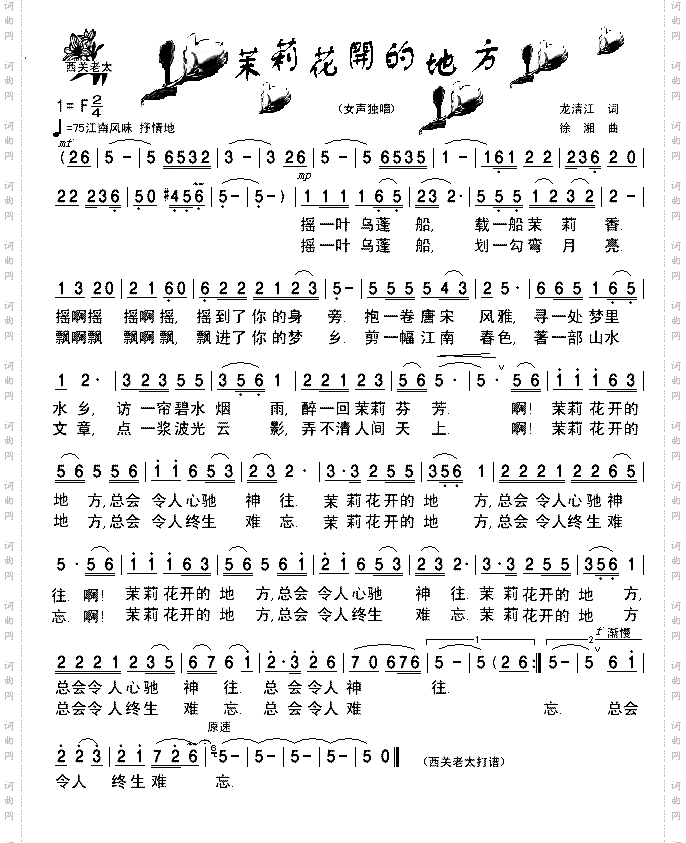 西关老太
茉莉花開的地方
1=F 2/4
（女声独唱）
龙清江 词
♩=75江南风味 抒情地
徐湘 曲
mf
(26 | 5 - | 5 6532 | 3 - | 3 26 | 5 - | 5 6535 | 1 - | 1 161 | 2 2 | 236 | 2 0 |
mp
22 236 | 50 #456 | 5 - | 5 - ) | 1 1 1 | 1 65 | 23 2· | 5 5 5 | 1232 | 2 - |
摇一叶乌蓬船, 载一船茉莉香.
摇一叶乌蓬船, 划一勾弯月亮.
13 20 | 21 60 | 6 2 2 2 | 2123 | 5 - | 5 5 5 5 | 5 543 | 25· | 6651 | 165 |
摇啊摇 摇啊摇, 摇到了你的身旁. 抱一卷唐宋风雅, 寻一处梦里
飘啊飘 飘啊飘, 飘进了你的梦乡. 剪一幅江南春色, 著一部山水
1 2· | 3 2 3 5 5 | 356 | 12 2 3 2 3 | 56 | 5· | 5· 56 | i i 6 3 |
水乡, 访一帘碧水烟雨, 醉一回茉莉芬芳. 啊! 茉莉花开的
文章, 点一浆波光云影, 弄不清人间天上. 啊! 茉莉花开的
56 556 | i i 6 53 | 23 2· | 3·3 255 | 356 1 | 2221 | 2265 |
地方,总会令人心驰神往. 茉莉花开的地方,总会令人心驰神
地方,总会令人终生难忘. 茉莉花开的地方,总会令人终生难
5· 56 | i i 6 3 | 5 6 5 5 6 | 2 i 6 53 | 23 2· | 3·3 255 | 356 1 |
往. 啊! 茉莉花开的地方,总会令人心驰神往. 茉莉花开的地方,
忘. 啊! 茉莉花开的地方,总会令人终生难忘. 茉莉花开的地方,
1
2
f 渐慢
2221 | 235 | 676i | 2·326 | 70676 | 5 - | 5 (26 :‖ 5 - | 5 6i |
总会令人心驰神往. 总会令人神往.
总会令人终生难忘. 总会令人难忘. 总会
原速
2 23 | 2 i | 726 | 5 - | 5 - | 5 - | 5 - | 50 ‖
（西关老太打谱）
令人终生难忘.
词曲网